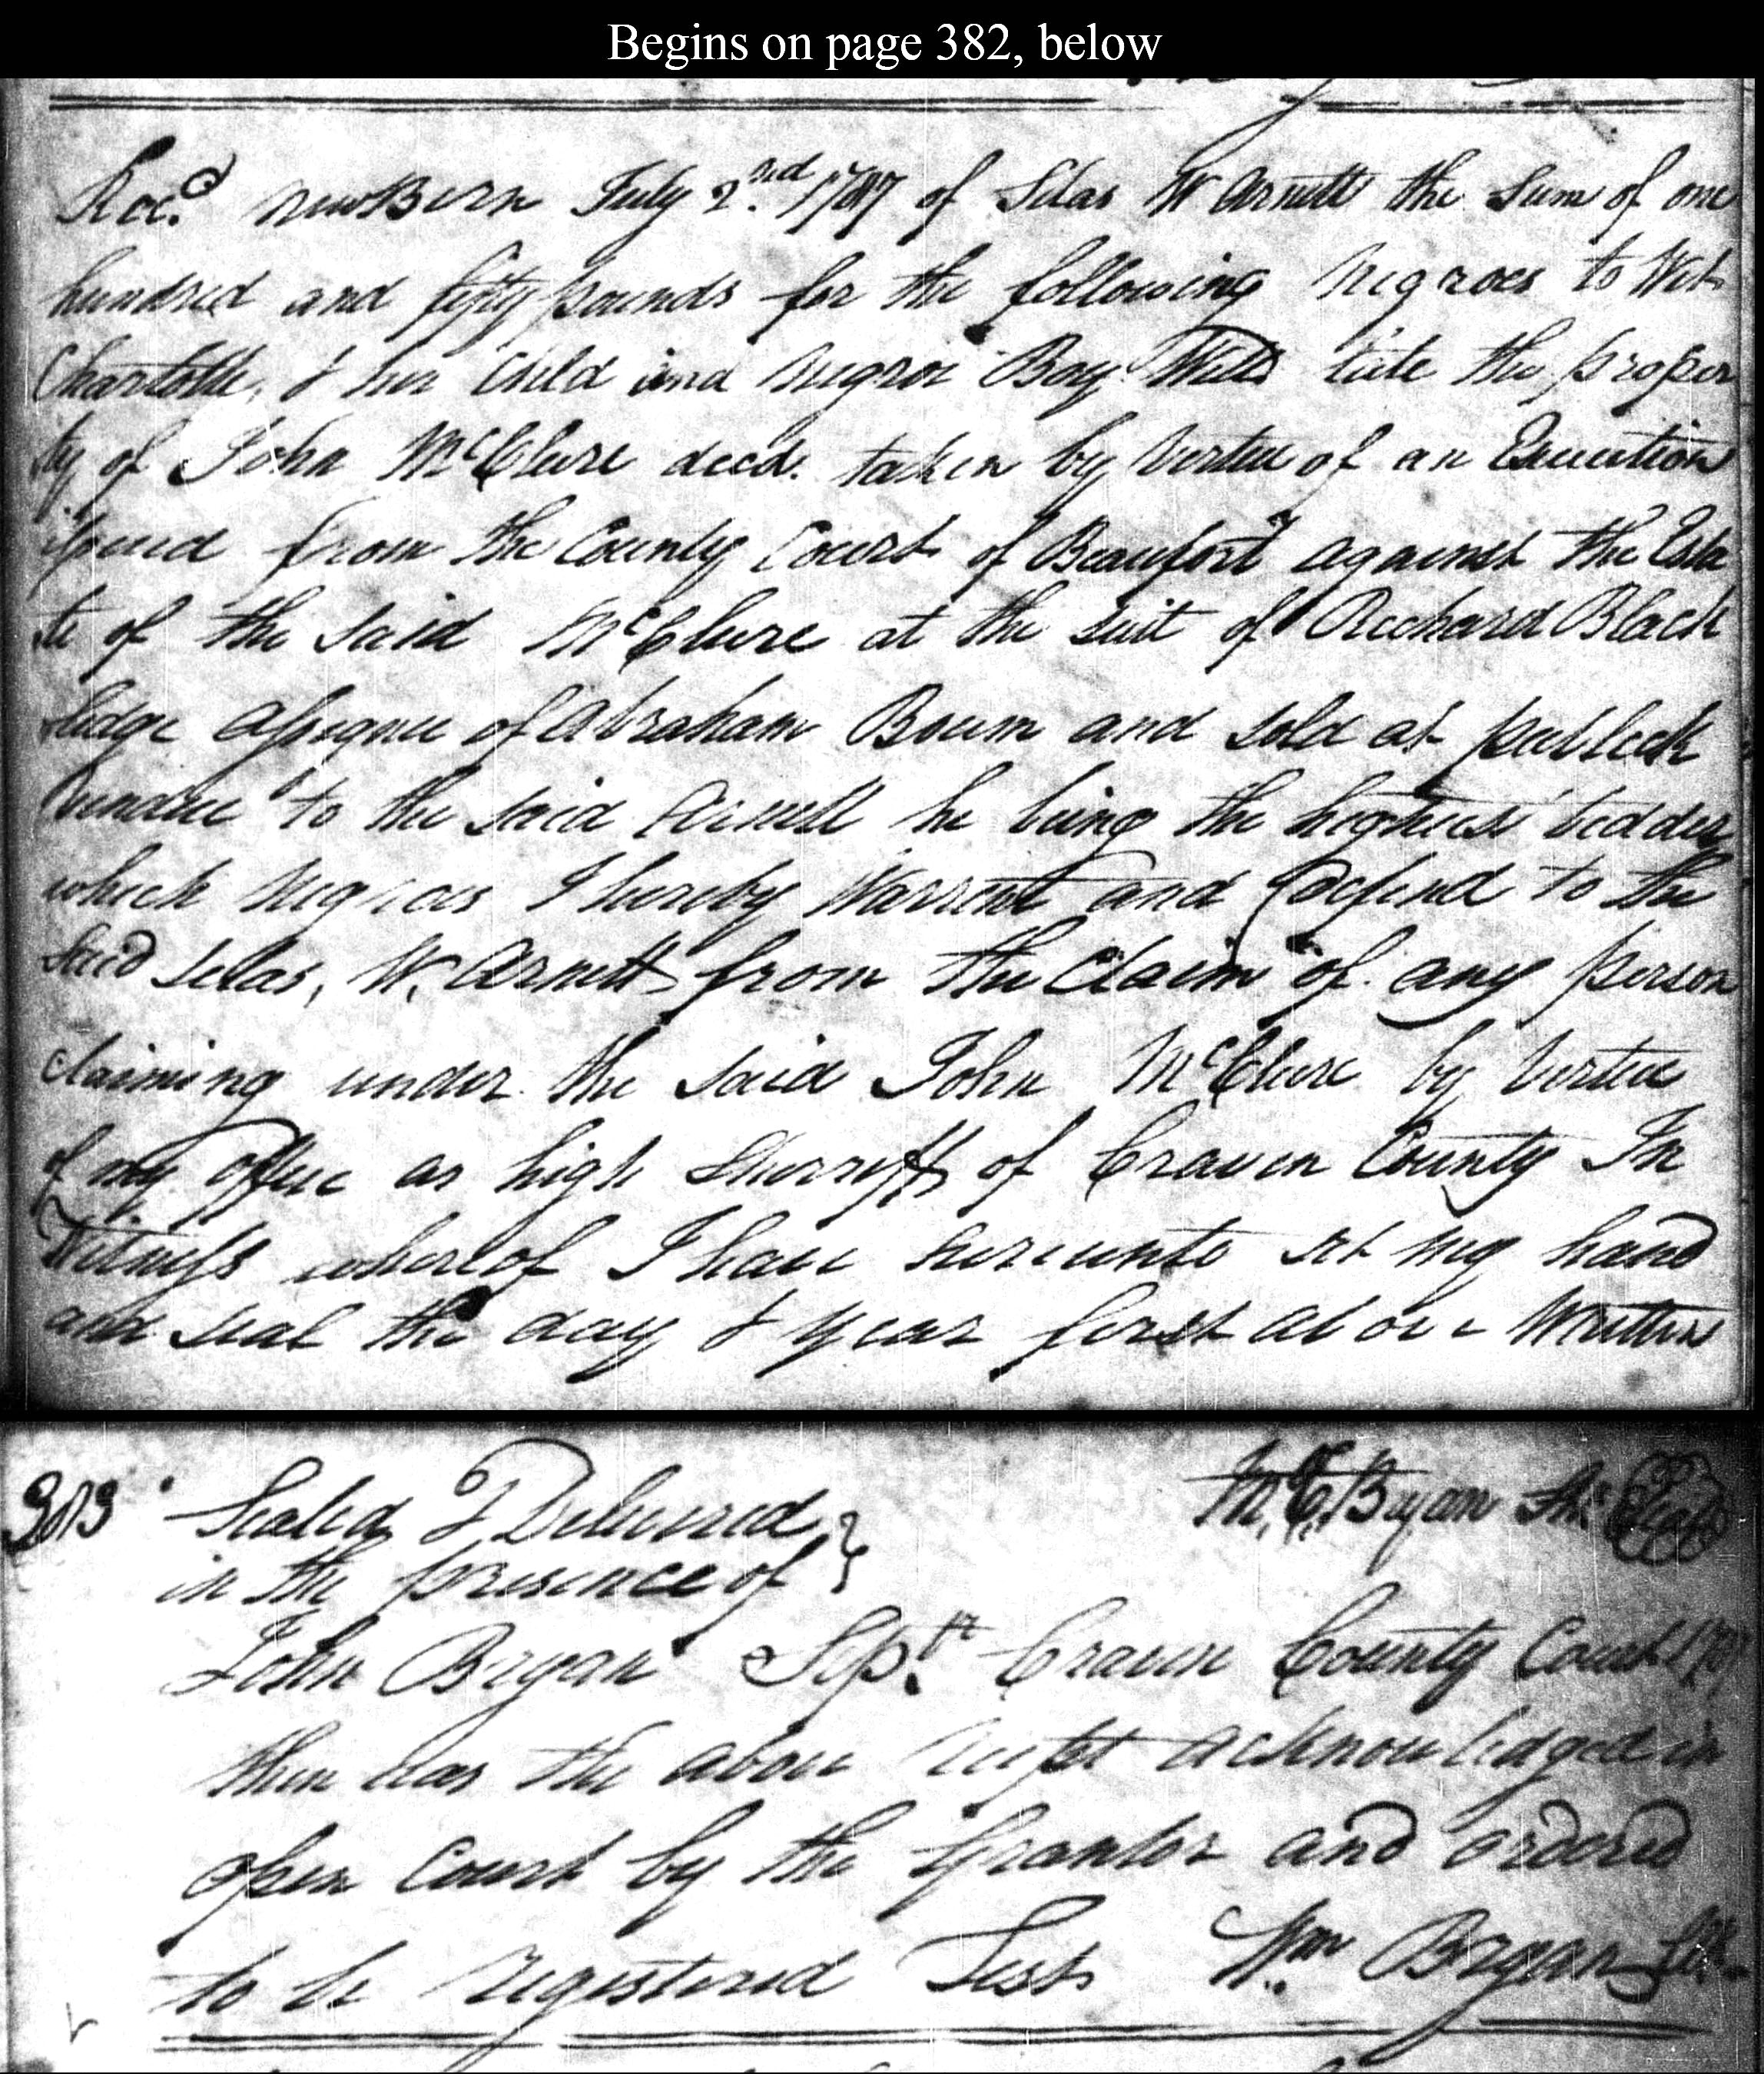 Begins on page 382, below
Recd. NewBern July 2nd. 1787 of Silas W Arnett the Sum of one
hundred and fifty pounds for the following Negroes to Wit
Charlotte, & her Child and Negroe Boy Will late the proper
ty of John McClure decd. taken by Vertue of an Execution
issued from the County Court of Beaufort against the Esta
te of the said McClure at the suit of Rechard Black
ledge assignee of Abraham Boum and sold at publeck
Vendue to the said Arnett he being the highest bedder
which Negroes I hereby Warrent and Defend to the
Said Selas, W. Arnett from the Claim of any person
claiming under the said John McClure by Vertue
of my office as high Sherriff of Craven County In
Witness whereof I have hereunto set my hand
and seal the day & year ferst above Written
383 Sealed & Delivered M. C. Bryan Shr. Seal
in the presence of
John Bryan Sept. Craven County Court 1787
then was the above recept acknowledged in
open Court by the Grantor and ordered
to be registered Test Wm. Bryan